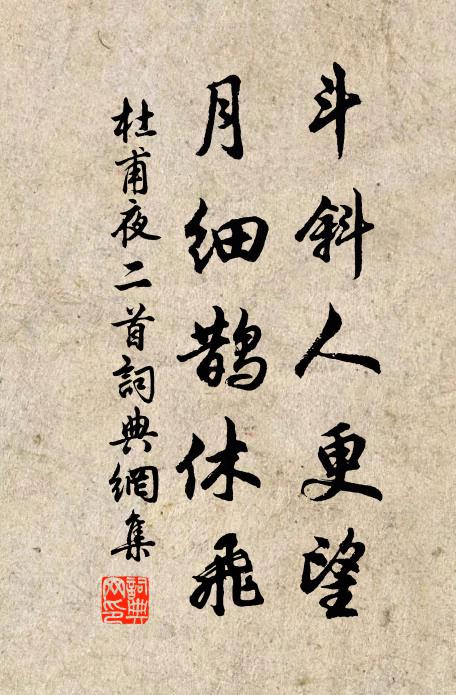 斗斜人更望
月細鵲休飛
杜甫夜二首詞典網集
詞典
网印